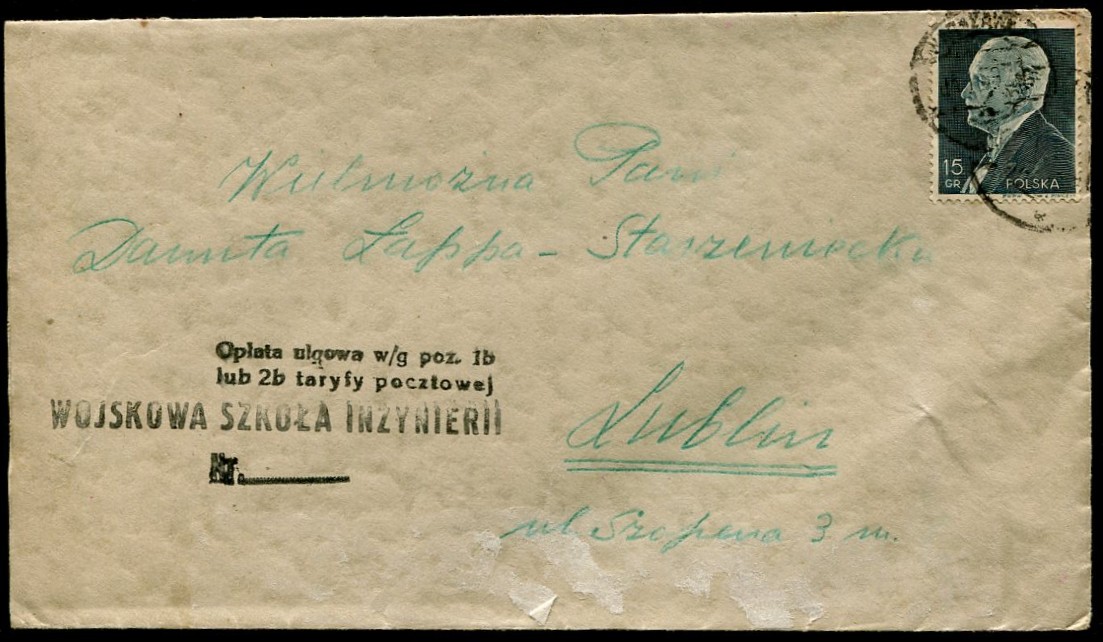 15 GR POLSKA
Wielmożna Pani
Danuta Łappa - Starzeniecka
Opłata ulgowa w/g poz. 1b
lub 2b taryfy pocztowej
WOJSKOWA SZKOŁA INŻYNIERII
Nr.
Lublin
ul. Szopena 3 m.